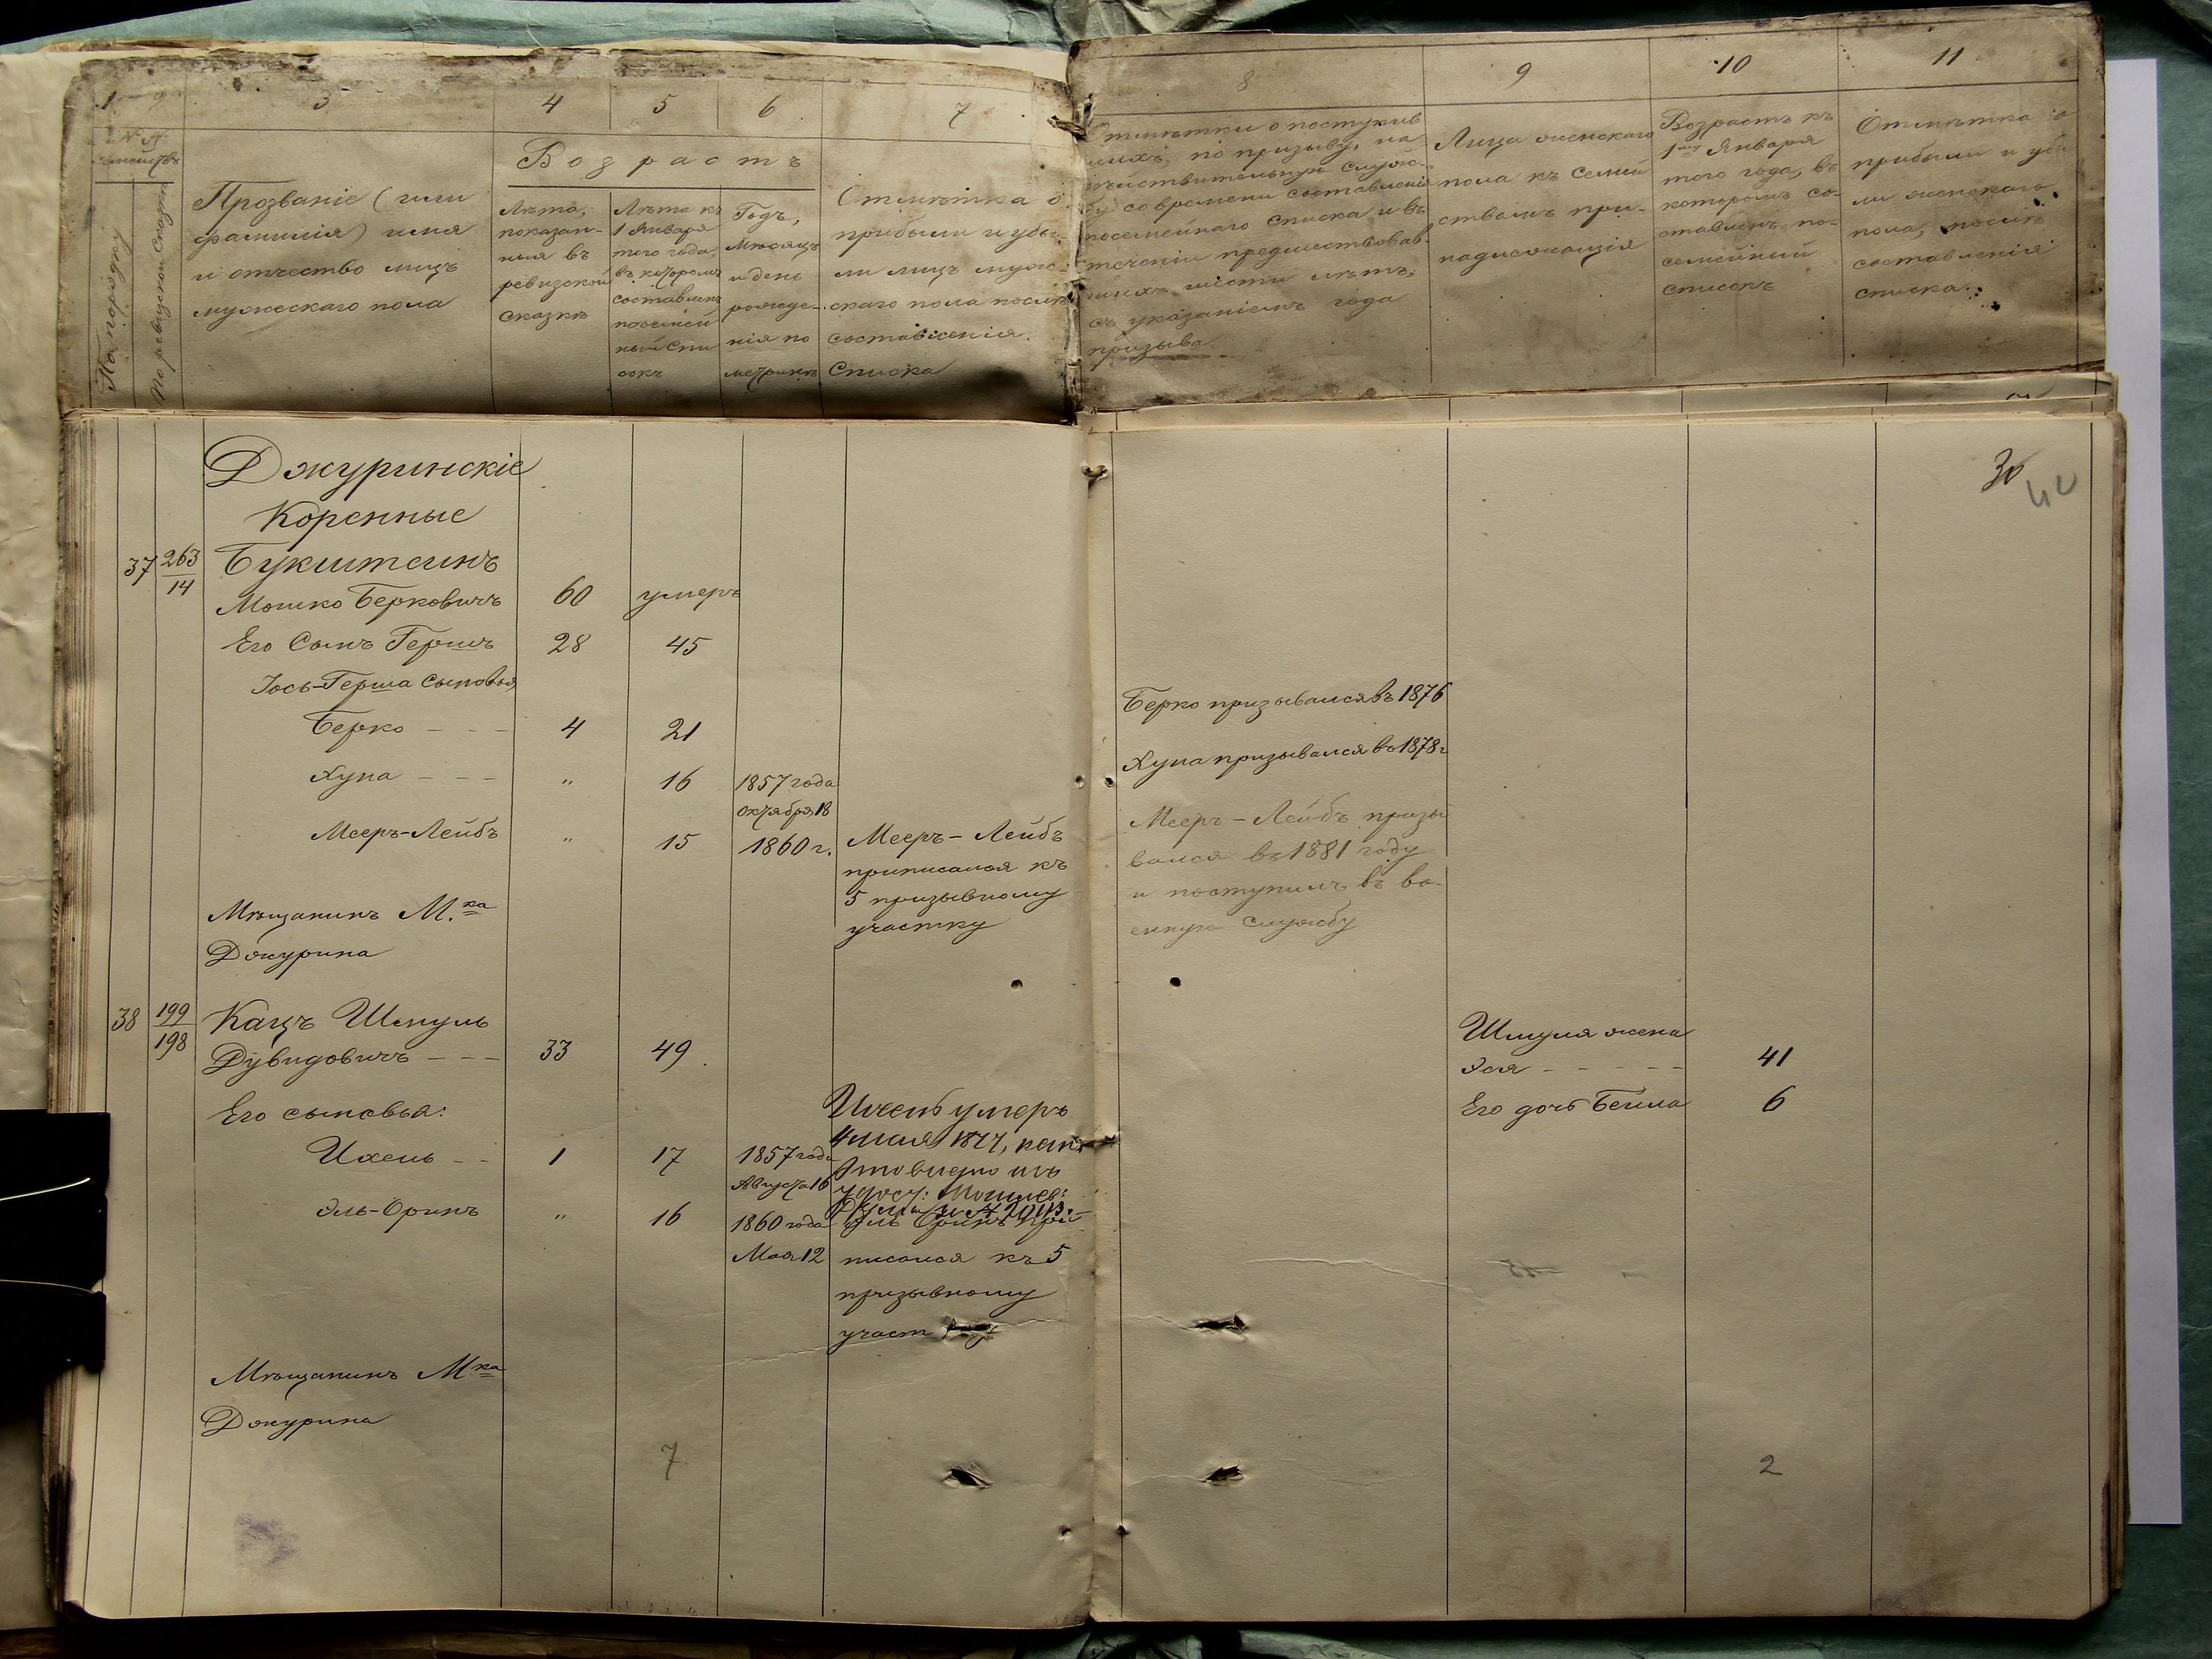 1
2
3
4
5
6
7
№ №
семействъ
По порядку
По ревизской сказкѣ
Прозваніе (или
фамилія) имя
и отчество лицъ
мужескаго пола
Возрастъ
Лѣта,
показан-
ныя въ
ревизской
сказкѣ
Лѣта къ
1 Января
того года,
въ которомъ
составленъ
посемей
ный спи
сокъ
Годъ,
мѣсяцъ
и день
рожде-
нія по
метрикѣ
Отмѣтка о
прибыли и убы-
ли лицъ муже-
скаго пола послѣ
составленія
списка
8
9
10
11
Отмѣтки о поступив
шихъ, по призыву, на
дѣйствительную служ-
бу со времени составленія
посемейнаго списка и въ
теченіи предшествовав-
шихъ шести лѣтъ,
съ указаніемъ года
призыва
Лица женскаго
пола къ семей
ствамъ при-
надлежащія
Возрастъ къ
1му Января
того года, въ
которомъ со-
ставленъ по-
семейный
списокъ
Отмѣтка о
прибыли и убы
ли женскаго
пола, послѣ
составленія
списка.
30
42
Джуринскіе
Коренные
37 263/14 Букштеинъ
Мошко Берковичъ 60 умеръ
Его Сынъ Гершъ 28 45
Іось-Герша Сыновья
Берко - - - 4 21
Берко призывался въ 1876
Хуна - - - " 16 1857 года
Октября 18
Хуна призывался въ 1878 г
Мееръ-Лейбъ " 15 1860 г.
Мееръ-Лейбъ
приписался къ
5 призывному
участку
Мееръ-Лейбъ призы
вался въ 1881 году
и поступилъ въ во-
енную службу
Мѣщанинъ М.ка
Джурина
38 199/198 Кацъ Шмуль
Дувидовичъ - - - 33 49
Шмуля жена
Эся - - - - - 41
Его дочь Бейла 6
Его сыновья:
Ихель - - 1 17 1857 года
Августа 16
Ихель умеръ
4 мая 1877, какъ
это видно изъ
Эль-Оринъ " 16 1860 года
Мая 12
Эль Оринъ при
писался къ 5
призывному
участку
Мѣщанинъ М.ка
Джурина
7
2